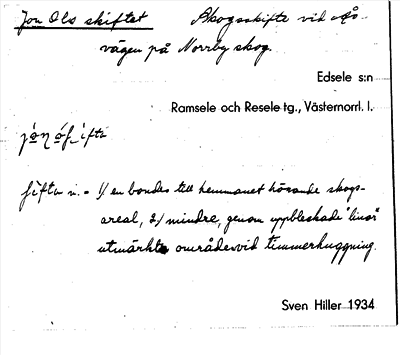 Jon Ols skiftet Skogsskifte vid Ås-
vägen på Norrby skog.
Edsele s:n
Ramsele och Resele tg., Västernorrl. l.
ʃifta n. = 1/ en bondes till hemmanet hörande skogs-
areal, 2/ mindre, genom uppbleckade "linor"
utmärkt område vid timmerhuggning.
Sven Hiller 1934